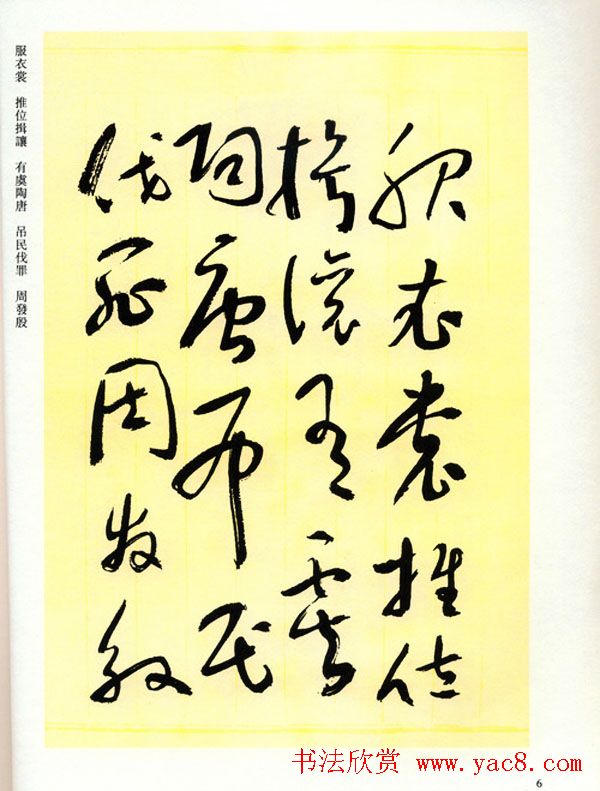 服衣裳推位
揖讓有虞
陶唐吊民
伐罪周發殷
服衣裳 推位揖讓 有虞陶唐 吊民伐罪 周發殷
书法欣赏 www.yac8.com
6